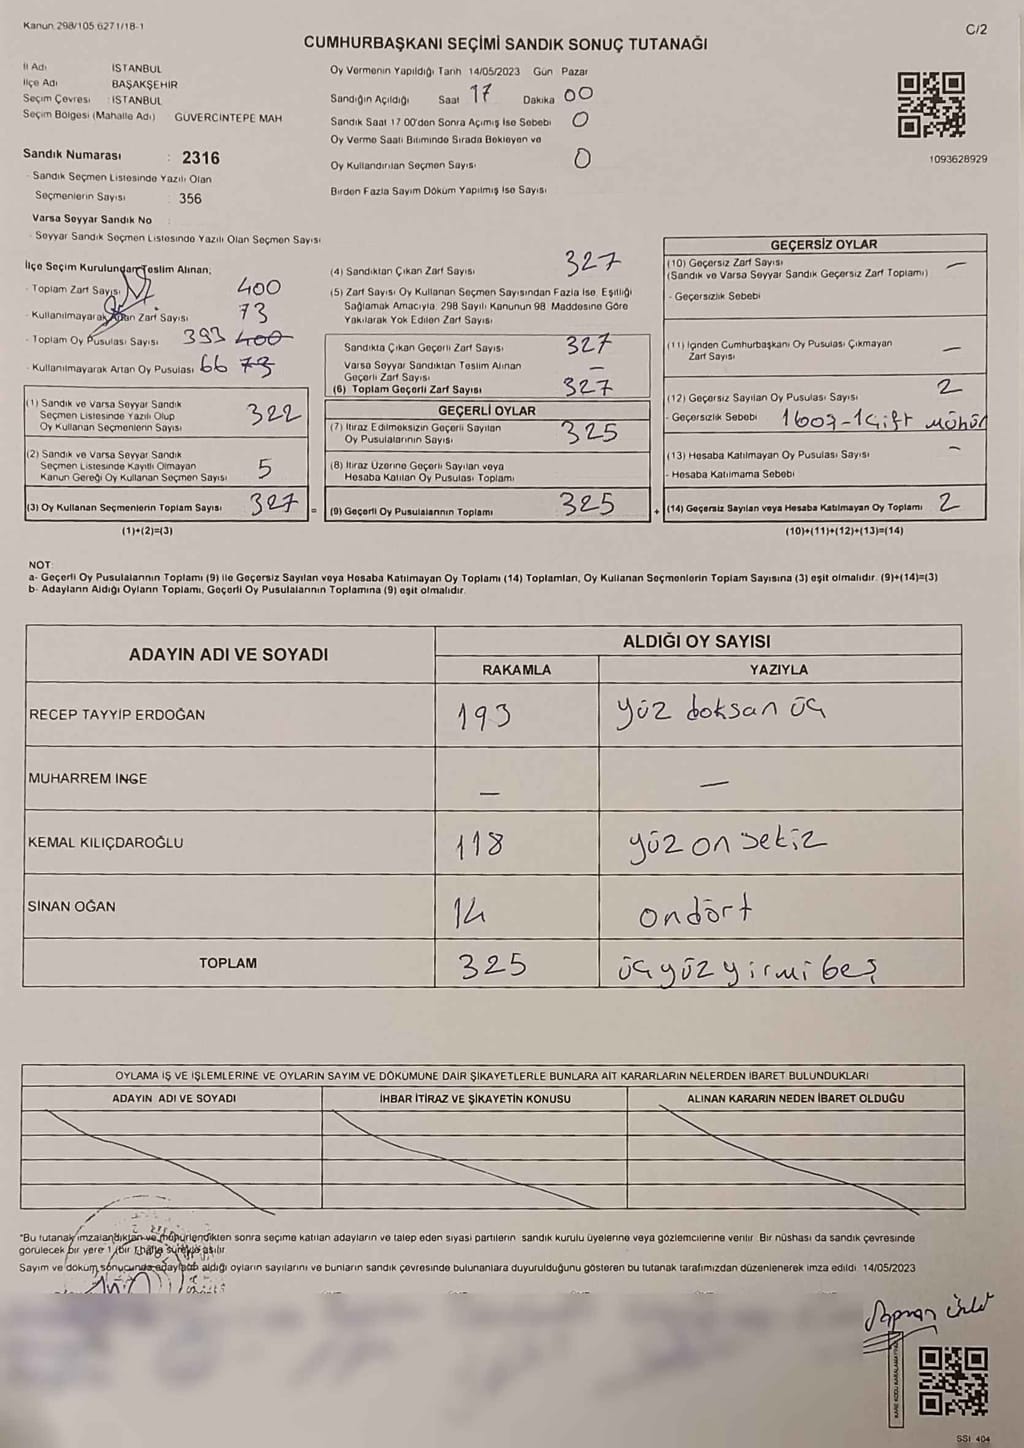 Kanun 298/105 6271/18-1
C/2
CUMHURBAŞKANI SEÇİMİ SANDIK SONUÇ TUTANAĞI
İl Adı İSTANBUL
İlçe Adı BAŞAKŞEHİR
Seçim Çevresi : İSTANBUL
Seçim Bölgesi (Mahalle Adı) GÜVERCİNTEPE MAH
Sandık Numarası : 2316
- Sandık Seçmen Listesinde Yazılı Olan
Seçmenlerin Sayısı 356
Varsa Seyyar Sandık No :
- Seyyar Sandık Seçmen Listesinde Yazılı Olan Seçmen Sayısı
Oy Vermenin Yapıldığı Tarih 14/05/2023 Gün Pazar
Sandığın Açıldığı Saat 17 Dakika 00
Sandık Saat 17 00'den Sonra Açımış İse Sebebi 0
Oy Verme Saati Bitiminde Sırada Bekleyen ve
Oy Kullandırılan Seçmen Sayısı 0
Birden Fazla Sayım Döküm Yapılmış İse Sayısı
1093628929
İlçe Seçim Kurulundan Teslim Alınan;
- Toplam Zarf Sayısı 400
- Kullanılmayarak Artan Zarf Sayısı 73
- Toplam Oy Pusulası Sayısı 393 400
- Kullanılmayarak Artan Oy Pusulası 66 73
(1) Sandık ve Varsa Seyyar Sandık
Seçmen Listesinde Yazılı Olup
Oy Kullanan Seçmenlerin Sayısı 322
(2) Sandık ve Varsa Seyyar Sandık
Seçmen Listesinde Kayıtlı Olmayan
Kanun Gereği Oy Kullanan Seçmen Sayısı 5
(3) Oy Kullanan Seçmenlerin Toplam Sayısı 327 =
(1)+(2)=(3)
(4) Sandıktan Çıkan Zarf Sayısı 327
(5) Zarf Sayısı Oy Kullanan Seçmen Sayısından Fazla İse, Eşitliği
Sağlamak Amacıyla, 298 Sayılı Kanunun 98 Maddesine Göre
Yakılarak Yok Edilen Zarf Sayısı
Sandıkta Çıkan Geçerli Zarf Sayısı 327
Varsa Seyyar Sandıktan Teslim Alınan
Geçerli Zarf Sayısı —
(6) Toplam Geçerli Zarf Sayısı 327
GEÇERLİ OYLAR
(7) İtiraz Edilmeksizin Geçerli Sayılan
Oy Pusulalarının Sayısı 325
(8) İtiraz Üzerine Geçerli Sayılan veya
Hesaba Katılan Oy Pusulası Toplamı
(9) Geçerli Oy Pusulalarının Toplamı 325 +
GEÇERSİZ OYLAR
(10) Geçersiz Zarf Sayısı —
(Sandık ve Varsa Seyyar Sandık Geçersiz Zarf Toplamı)
- Geçersizlik Sebebi
(11) İçinden Cumhurbaşkanı Oy Pusulası Çıkmayan
Zarf Sayısı —
(12) Geçersiz Sayılan Oy Pusulası Sayısı 2
- Geçersizlik Sebebi 1 çift mühür
(13) Hesaba Katılmayan Oy Pusulası Sayısı —
- Hesaba Katılmama Sebebi
(14) Geçersiz Sayılan veya Hesaba Katılmayan Oy Toplamı 2
(10)+(11)+(12)+(13)=(14)
NOT:
a- Geçerli Oy Pusulalarının Toplamı (9) ile Geçersiz Sayılan veya Hesaba Katılmayan Oy Toplamı (14) Toplamları, Oy Kullanan Seçmenlerin Toplam Sayısına (3) eşit olmalıdır. (9)+(14)=(3)
b- Adayların Aldığı Oyların Toplamı, Geçerli Oy Pusulalarının Toplamına (9) eşit olmalıdır.
ADAYIN ADI VE SOYADI
ALDIĞI OY SAYISI
RAKAMLA YAZIYLA
RECEP TAYYİP ERDOĞAN 193 yüz doksan üç
MUHARREM İNCE — —
KEMAL KILIÇDAROĞLU 118 yüz on sekiz
SİNAN OĞAN 14 ondört
TOPLAM 325 üçyüz yirmi beş
OYLAMA İŞ VE İŞLEMLERİNE VE OYLARIN SAYIM VE DÖKÜMÜNE DAİR ŞİKAYETLERLE BUNLARA AİT KARARLARIN NELERDEN İBARET BULUNDUKLARI
ADAYIN ADI VE SOYADI İHBAR İTİRAZ VE ŞİKAYETİN KONUSU ALINAN KARARIN NEDEN İBARET OLDUĞU
"Bu tutanak imzalandıktan ve mühürlendikten sonra seçime katılan adayların ve talep eden siyasi partilerin sandık kurulu üyelerine veya gözlemcilerine verilir. Bir nüshası da sandık çevresinde
görülecek bir yere 1 (bir) hafta süreyle asılır.
Sayım ve döküm sonucunda adayların aldığı oyların sayılarını ve bunların sandık çevresinde bulunanlara duyurulduğunu gösteren bu tutanak tarafımızdan düzenlenerek imza edildi. 14/05/2023
SSI 404